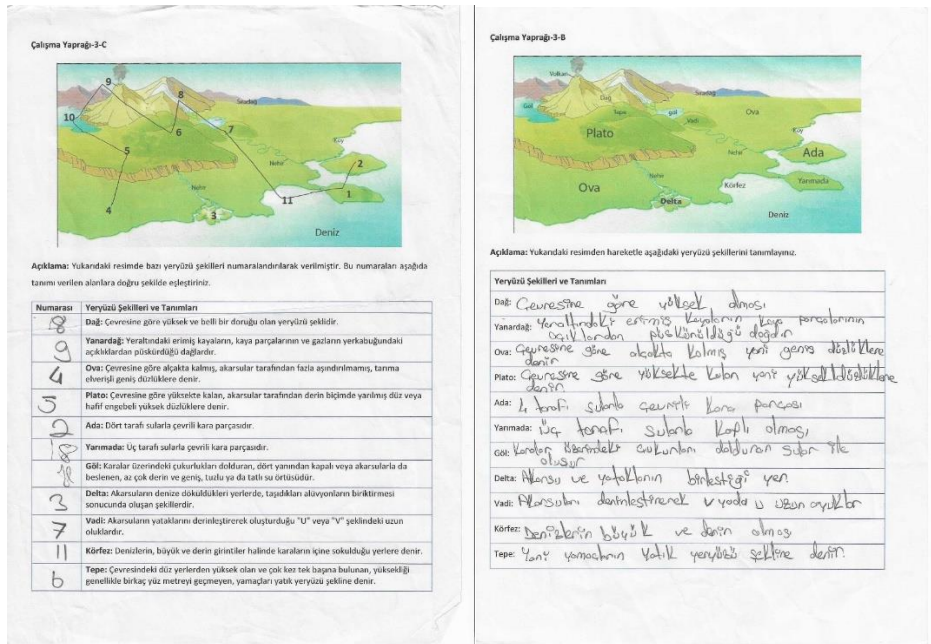 Çalışma Yaprağı-3-C
9
8
Sıradağ
10
6
7
5
Köy
Nehir
2
Nehir
4
3
11
1
Deniz
Açıklama: Yukarıdaki resimde bazı yeryüzü şekilleri numaralandırılarak verilmiştir. Bu numaraları aşağıda
tanımı verilen alanlara doğru şekilde eşleştiriniz.
Numarası Yeryüzü Şekilleri ve Tanımları
8 Dağ: Çevresine göre yüksek ve belli bir doruğu olan yeryüzü şeklidir.
9 Yanardağ: Yeraltındaki erimiş kayaların, kaya parçalarının ve gazların yerkabuğundaki
açıklıklardan püskürdüğü dağlardır.
4 Ova: Çevresine göre alçakta kalmış, akarsular tarafından fazla aşındırılmamış, tarıma
elverişli geniş düzlüklere denir.
5 Plato: Çevresine göre yüksekte kalan, akarsular tarafından derin biçimde yarılmış düz veya
hafif engebeli yüksek düzlüklere denir.
2 Ada: Dört tarafı sularla çevrili kara parçasıdır.
Yarımada: Üç tarafı sularla çevrili kara parçasıdır.
Göl: Karalar üzerindeki çukurlukları dolduran, dört yanından kapalı veya akarsularla da
beslenen, az çok derin ve geniş, tuzlu ya da tatlı su örtüsüdür.
3 Delta: Akarsuların denize döküldükleri yerlerde, taşıdıkları alüvyonların biriktirmesi
sonucunda oluşan şekillerdir.
7 Vadi: Akarsuların yataklarını derinleştirerek oluşturduğu "U" veya "V" şeklindeki uzun
oluklardır.
11 Körfez: Denizlerin, büyük ve derin girintiler halinde karaların içine sokulduğu yerlere denir.
6 Tepe: Çevresindeki düz yerlerden yüksek olan ve çok kez tek başına bulunan, yüksekliği
genellikle birkaç yüz metreyi geçmeyen, yamaçları yatık yeryüzü şekline denir.
Çalışma Yaprağı-3-B
Volkan
Sıradağ
Göl
Dağ
Tepe
göl
Ova
Vadi
Plato
Köy
Nehir
Ada
Nehir
Ova
Körfez
Yarımada
Delta
Deniz
Açıklama: Yukarıdaki resimden hareketle aşağıdaki yeryüzü şekillerini tanımlayınız.
Yeryüzü Şekilleri ve Tanımları
Dağ: Çevresine göre yüksek olması
Yanardağ: Yeraltındaki erimiş kayaların kaya parçalarının
açıklardan püskürüldüğü dağdır
Ova: Çevresine göre alçakta kalmış yani geniş düzlüklere
denir
Plato: Çevresine göre yüksekte kalan yani yüksek düzlüklere
denir
Ada: 4 tarafı sularla çevrili kara parçası
Yarımada: Üç tarafı sularla kaplı olması
Göl: Karalar üzerindeki çukurları dolduran sular ile
oluşur
Delta: Akarsu ve yatakların birleştiği yer
Vadi: Akarsuları derinleştirerek v yada u uzun oyuklar
Körfez: Denizlerin büyük ve derin olması
Tepe: Yani yamaçların yatık yeryüzü şekline denir.